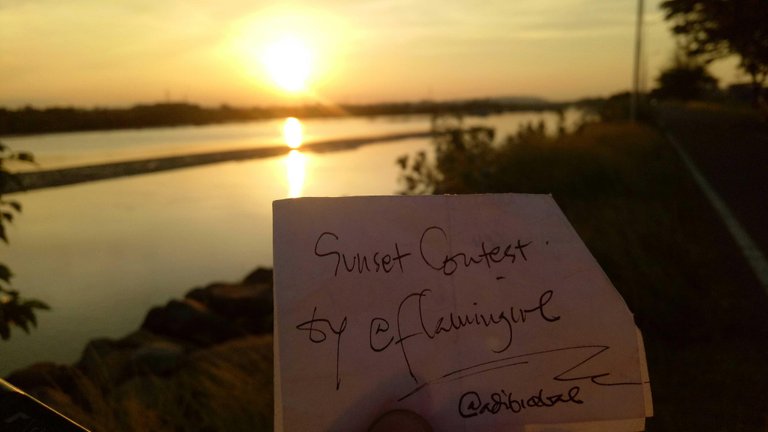 Sunset Contest.
by @flamingirl